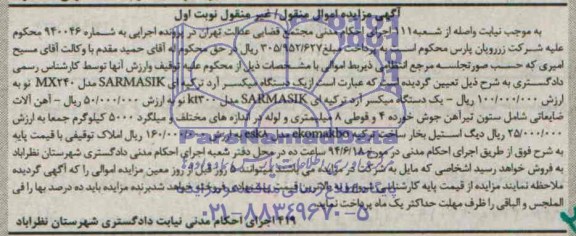 آگهی مزایده اموال منقول/ غیر منقول نوبت اول
به موجب نیابت واصله از شعبه ۱۱۱ اجرای احکام مدنی مجتمع قضایی عدالت تهران در پرونده اجرایی به شماره ۹۴۰۰۴۶ محکوم
علیه شرکت زررویان پارس محکوم است به پرداخت مبلغ ۳۰۵/۹۵۲/۶۲۷ ریال در حق محکوم له آقای حمید مقدم با وکالت آقای مسیح
امیری که حسب صورتجلسه مرجع انتظامی ذیربط اموالی با مشخصات ذیل از محکوم علیه توقیف وارزش آنها توسط کارشناس رسمی
دادگستری به شرح ذیل تعیین گردیده است که عبارت است از یک دستگاه میکسر آرد ترکیه ای SARMASIK مدل MX۲۴۰ نو به
ارزش ۱۰۰/۰۰۰/۰۰۰ ریال – یک دستگاه میکسر آرد ترکیه ای SARMASIK مدل kt۳۰۰ نو به ارزش ۵۰/۰۰۰/۰۰۰ ریال – آهن آلات
ضایعاتی شامل ستون تیرآهن جوش خورده ۴ و قوطی ۸ و بستری و لوله در اندازه های مختلف و میلگرد ۵۰۰۰ کیلوگرم جمعا به ارزش
۲۵/۰۰۰/۰۰۰ ریال دیگ استیل بخار ساخت ترکیه ekomakbo مدل esk۸ به ارزش ۱۶۰/۰۰۰/۰۰۰ ریال املاک توقیفی با قیمت پایه
به شرح فوق از طریق اجرای احکام مدنی در مورخ ۹۴/۶/۱۸ ساعت ۱۰ در محل دفتر شعبه اجرای احکام مدنی دادگستری شهرستان نظرآباد
به فروش خواهد رسید اشخاصی که مایل به شرکت در مزایده می باشند میتوانند ۵ روز قبل از روز معین مزایده اموالی را که آگهی گردیده
ملاحظه نمایند مزایده از قیمت پایه کارشناسی شروع و به بالاترین قیمت پیشنهادی فروخته خواهد شد برنده مزایده باید ده درصد بها را فی
المجلس و الباقی را ظرف مهلت حداکثر یک ماه پرداخت نماید
۴۱۹ اجرای احکام مدنی نیابت دادگستری شهرستان نظراباد
ParsNamadData
۰۲۱-۸۸۳۴۹۶۷۰-۵